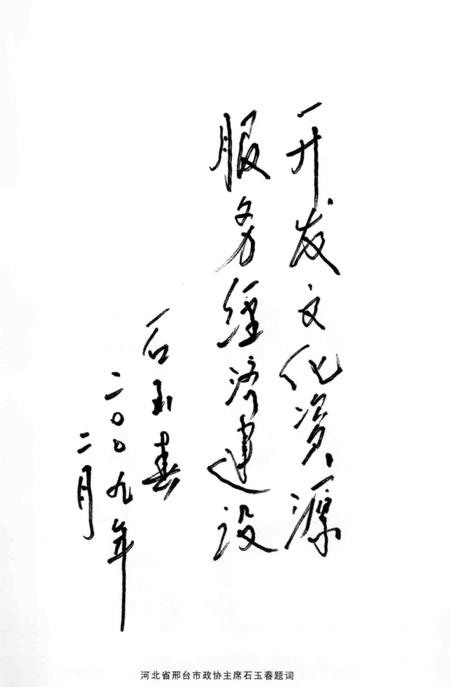 开发文化资源
服务经济建设
石玉春
二〇〇九年
二月
河北省邢台市政协主席石玉春题词